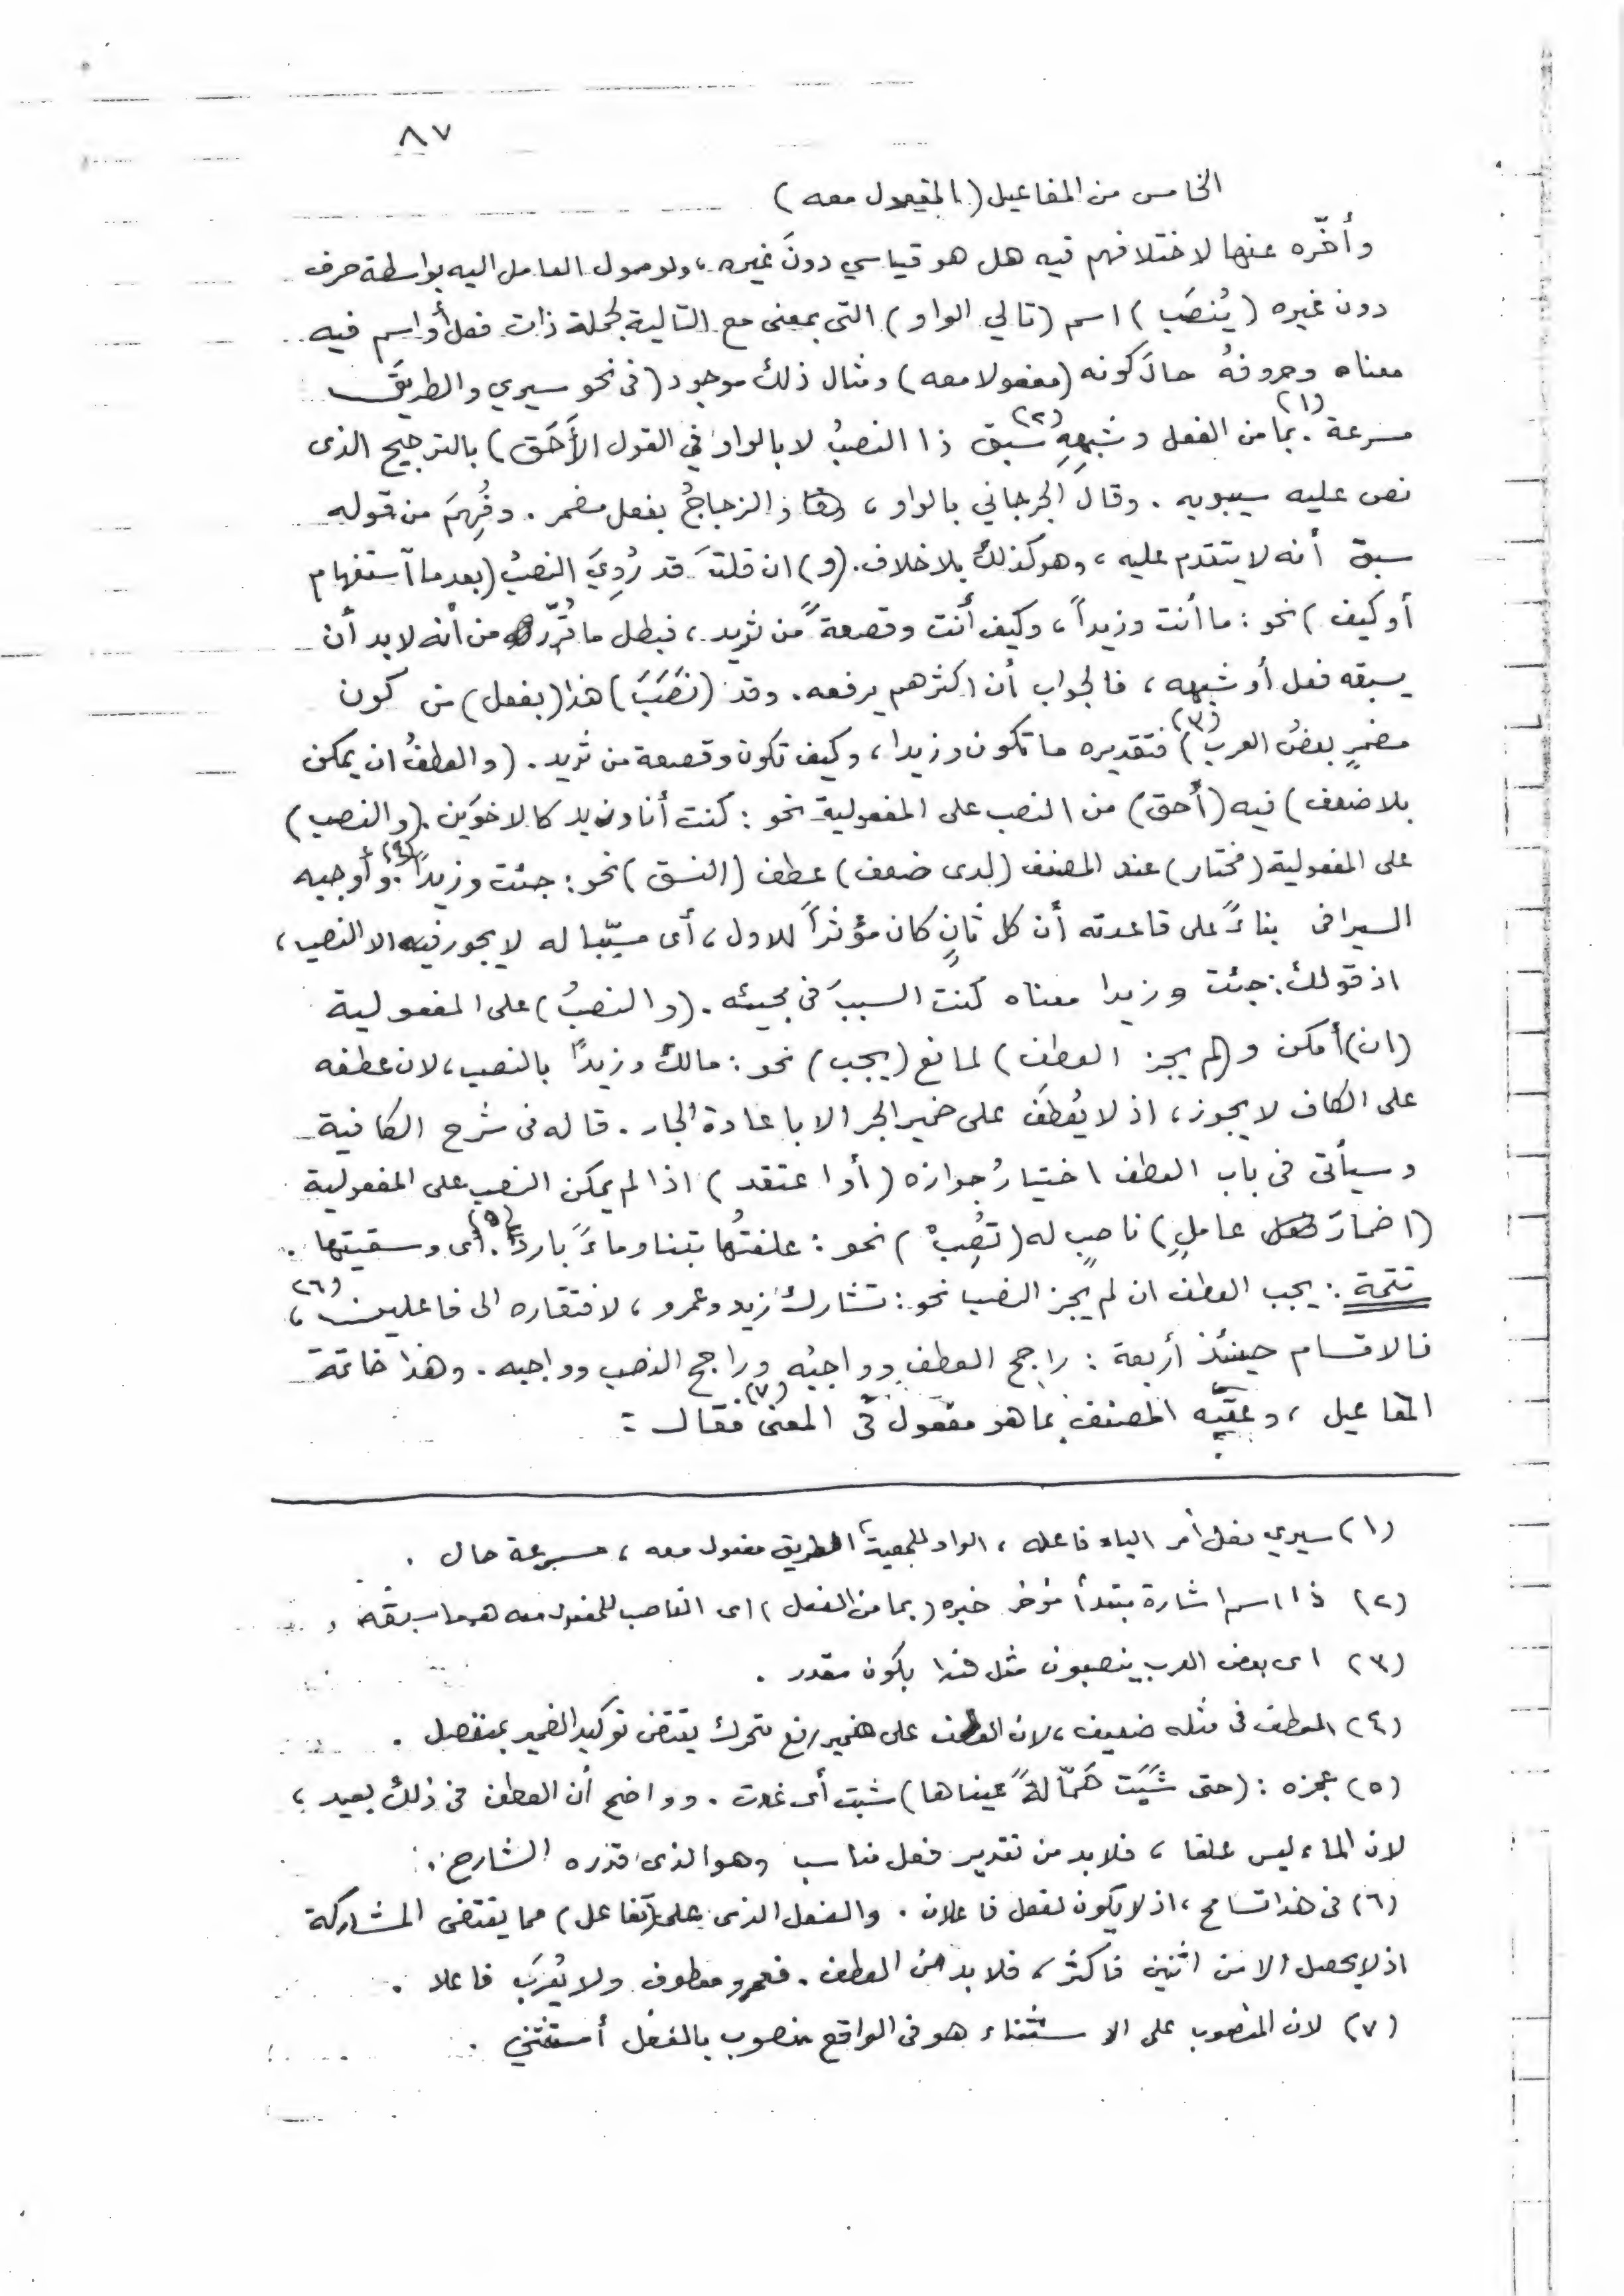 ٨٧
الخامس من المفاعيل (المفعول معه)
وأخّره عنها لاختلافهم فيه هل هو قياسي دونَ غيره، ولوصول العامل اليه بواسطة حرف
دون غيره (يُنصَب) اسم (تالي الواو) التي بمعنى مع التالية لجملة ذات فعل أو اسم فيه
معناه وحروفهُ حالَ كونه (مفعولا معه) ومثال ذلك موجود (فى نحو سيري والطريقَ
مسرعة (١). بما من الفعل وشبهِهِ سبق (٢) ذا النصبُ لا بالواو في القول الأَحَق) بالترجيح الذى
نص عليه سيبويه. وقالَ الجرجاني بالواو، والزجاجُ بفعل مضمر. وفُهِمَ من قوله
سبق أنه لا يتقدم عليه، وهو كذلك بلا خلاف. (و) ان قلتَ قد رُوِيَ النصبُ (بعد ما استفهام
أو كيف) نحو: ما أنت وزيداً، وكيف أنت وقصعةً من ثريد، فبطل ما قُرّر من أنه لا بد أن
يسبقه فعل أو شبهه، فالجواب أن اكثرهم يرفعه. وقد (نَصَبَ) هذا (بفعل) من كون
مضمرٍ بعضُ العرب) (٣) فتقديره ما تكون وزيدا، وكيف تكون وقصعة من ثريد. (والعطفُ ان يمكن
بلا ضعف) فيه (أحق) من النصب على المفعولية نحو: كنت أنا وزيد كالاخوَين. (والنصب)
على المفعولية (مختار) عند المصنف (لدى ضعف) عطف (النسق) نحو: جئت وزيداً (٤). وأوجبه
السيرافى بناءً على قاعدته أن كل ثانٍ كان مؤثراً للاول، أى مسبّبا له لا يجوز فيه الا النصب،
اذ قولك: جئت وزيدا معناه كنتَ السببَ فى مجيئه. (والنصبُ) على المفعولية
(ان) أمكن و(لم يجز العطف) لمانع (يجب) نحو: مالك وزيداً بالنصب، لان عطفه
على الكاف لا يجوز، اذ لا يُعطَف على ضمير الجر الا باعادة الجار. قاله فى شرح الكافية
وسيأتى فى باب العطف اختيارُ جوازه (أو اعتقد) اذا لم يمكن النصب على المفعولية
(اضمارَ عاملٍ) ناصبٍ له (تُصِبْ) نحو: علفتُها تبنا وماءً باردًا (٥). أى وسقيتها.
تتمة: يجب العطف ان لم يجز النصب نحو: تشارك زيد وعمرو، لافتقاره الى فاعلين (٦)،
فالاقسام حينئذ أربعة: راجح العطف وواجبُه وراجح النصب وواجبه. وهذا خاتمة
المفاعيل، وعقّبه المصنف بما هو مفعول فى المعنى (٧) فقال:
(١) سيري فعل أمر الياء فاعله، الواو للمعية، الطريق مفعول معه، مسرعة حال.
(٢) ذا اسم اشارة مبتدأ مؤخر خبره (بما من الفعل) اى الناصب للمفعول معه هو ما سبقه.
(٣) اى بعض العرب ينصبون مثل هذا بكون مقدر.
(٤) العطف فى مثله ضعيف، لان العطف على ضمير رفع متحرك يقتضى توكيد الضمير بمنفصل.
(٥) عجزه: (حتى شَتَت هَمّالةً عيناها) شبت أى غدت. وواضح أن العطف فى ذلك بعيد،
لان الماء ليس علفا، فلا بد من تقدير فعل مناسب وهو الذى قدره الشارح.
(٦) فى هذا تسامح، اذ لا يكون لفعل فاعلان. والفعل الذى على (تفاعل) مما يقتضى المشاركة
اذ لا يحصل الا من اثنين فأكثر، فلا بد من العطف. فعمرو معطوف ولا يُعرَب فاعلا.
(٧) لان المنصوب على الاستثناء هو فى الواقع منصوب بالفعل أستثني.